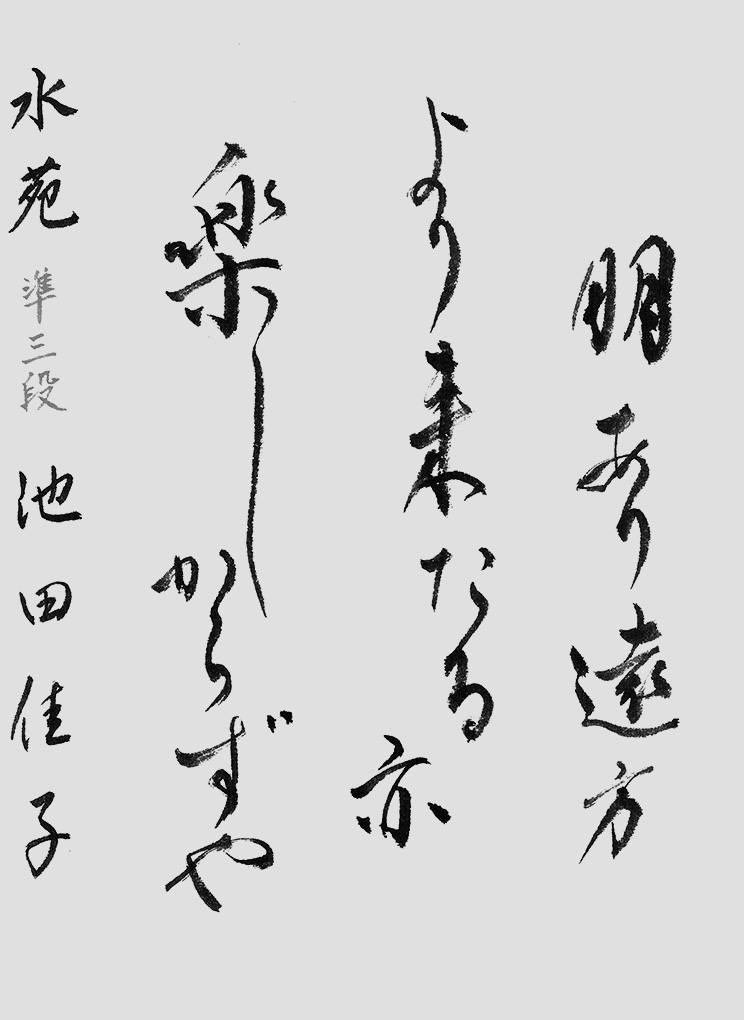 朋あり遠方
より来たる亦
楽しからずや
水苑 準三段 池田佳子